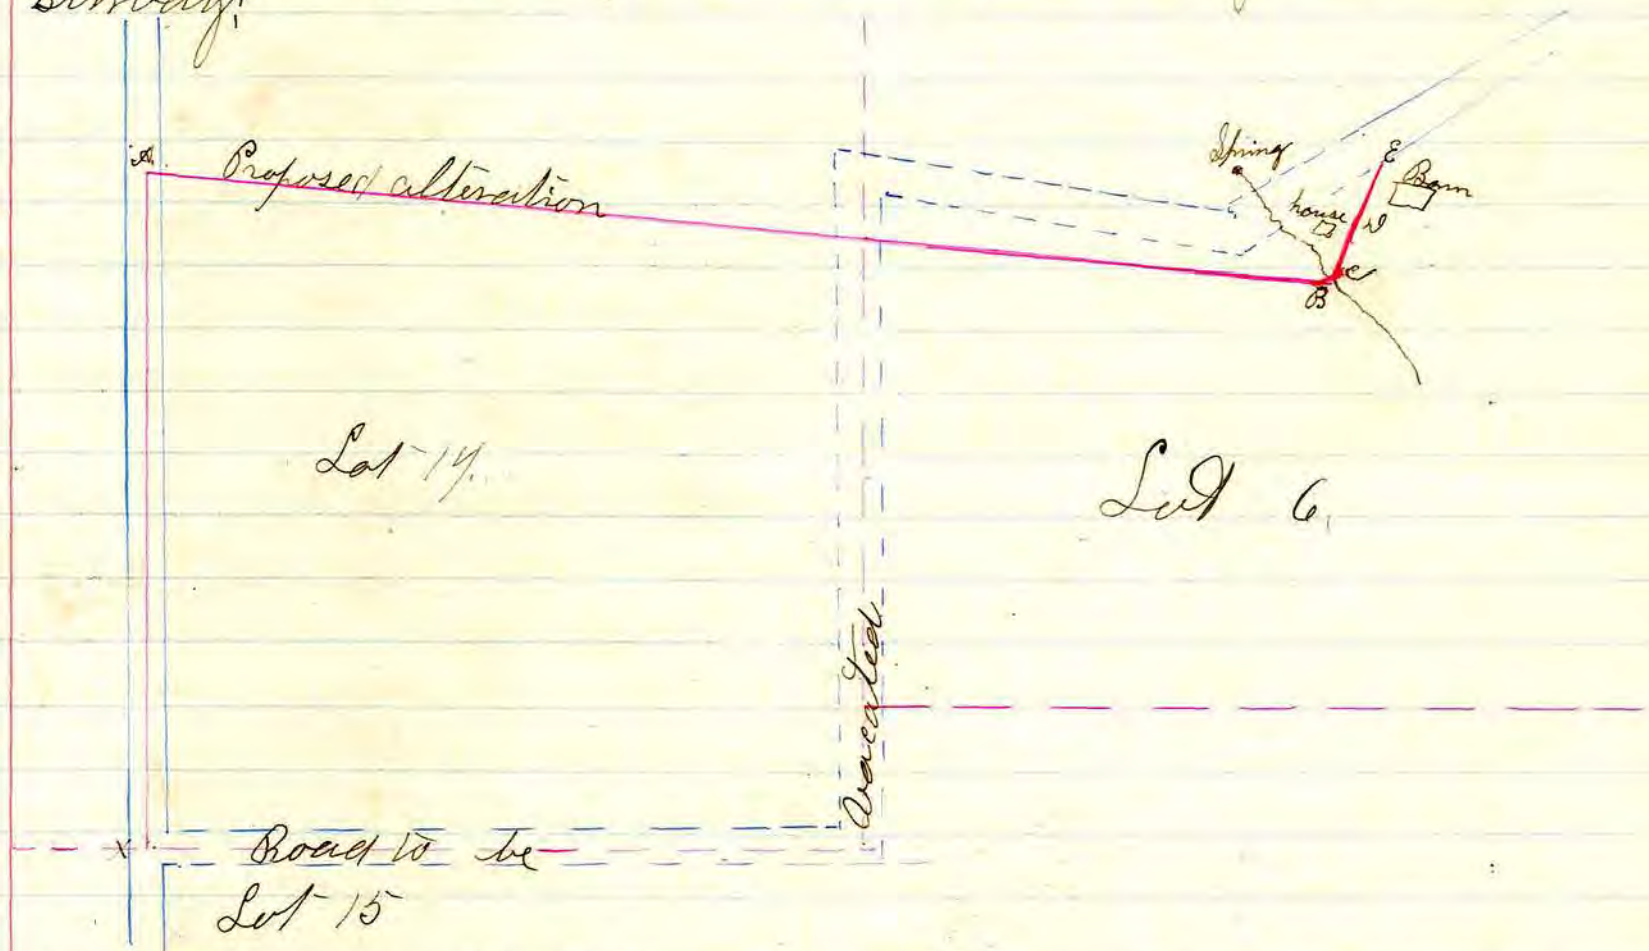 A.
Proposed alteration
Spring
house
Barn
E
D
C
B
Lot 14.
Lot 6.
vacated
X
Road to be
Lot 15